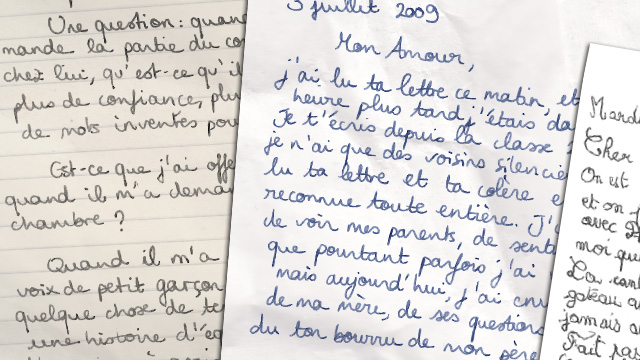 Une question : quan
mande la partie du co
chez lui, qu'est-ce qu'il
plus de confiance, plu
de mots inventés pou
Est-ce que j'ai offe
quand il m'a deman
chambre ?
Quand il m'a
voix de petit garçon
quelque chose de te
une histoire d'
3 juillet 2009
Mon Amour,
j'ai lu ta lettre ce matin, et
heure plus tard, j'étais da
Je t'écris depuis la classe
je n'ai que des voisins silencie
lu ta lettre et ta colère e
reconnue toute entière. J'
de voir mes parents, de sent
que pourtant parfois j'ai
mais aujourd'hui, j'ai cru
de ma mère, de ses questions
du ton bourru de mon père
Mardi
Cher
On est
et on
avec
moi qui
La con
gateau a
jamais a
Fait pas